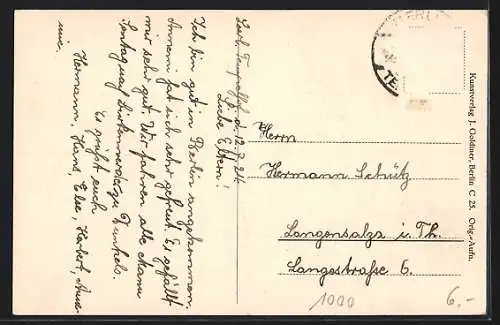 Berlin-Tempelhof, d. 12.7.24.
Liebe Eltern!
Ich bin gut in Berlin angekommen.
Annemi hat sich sehr gefreut. Es gefällt
mir sehr gut. Wir fahren alle Mann
Sonntag nach
Es grüßt euch
Hermann, Hans, Else, Herbert, Anne-
mie.
Herrn
Hermann Schütz
Langensalza i. Th.
Langestraße 6.
Kunstverlag J. Goldiner, Berlin C 25. Orig.-Aufn.
1000
6.-